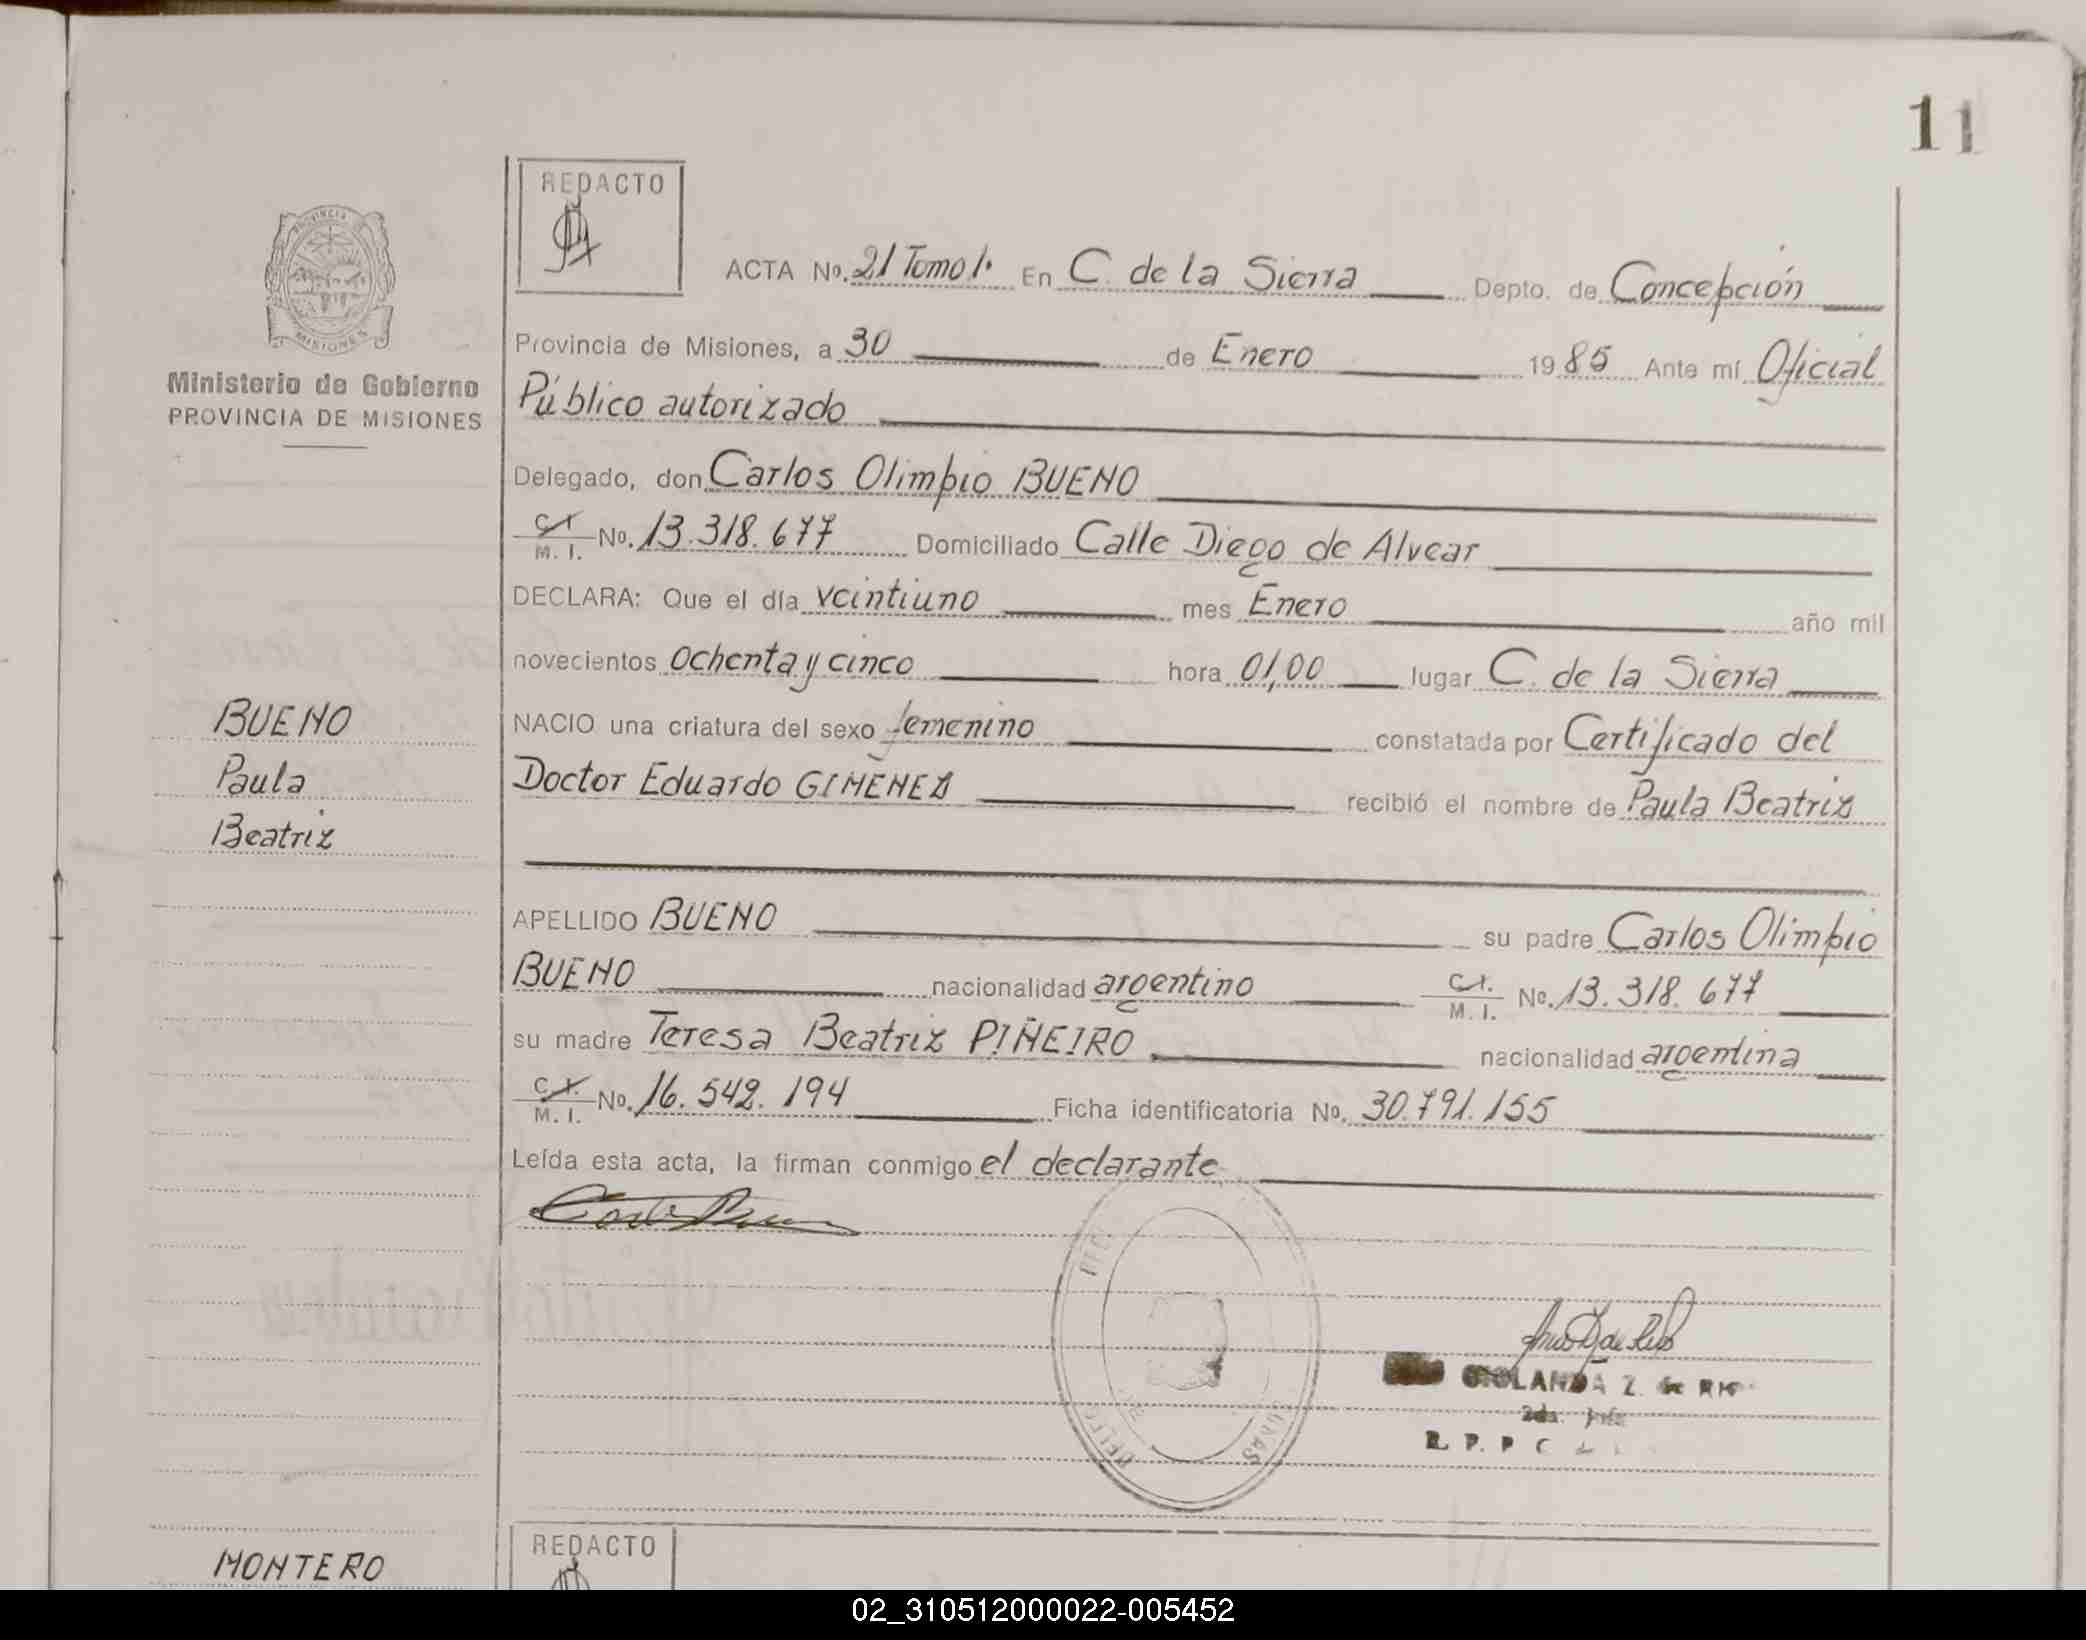 11
REDACTO
PROVINCIA
MISIONES
Ministerio de Gobierno
PROVINCIA DE MISIONES
ACTA No. 21 Tomo 1. En C. de la Sierra Depto. de Concepción
Provincia de Misiones, a 30 de Enero 1985 Ante mí Oficial
Público autorizado
Delegado, don Carlos Olimpio BUENO
C.I. M. I. No. 13.318.677 Domiciliado Calle Diego de Alvear
DECLARA: Que el día veintiuno mes Enero año mil
novecientos ochenta y cinco hora 01,00 lugar C. de la Sierra
NACIO una criatura del sexo femenino constatada por Certificado del
Doctor Eduardo GIMENEZ recibió el nombre de Paula Beatriz
BUENO
Paula
Beatriz
APELLIDO BUENO su padre Carlos Olimpio
BUENO nacionalidad argentino C.I. M. I. No. 13.318.677
su madre Teresa Beatriz PIÑEIRO nacionalidad argentina
C.I. M. I. No. 16.542.194 Ficha identificatoria No. 30.791.155
Leída esta acta, la firman conmigo el declarante
2da. Jefe
R. P. P.
REDACTO
MONTERO
02_310512000022-005452